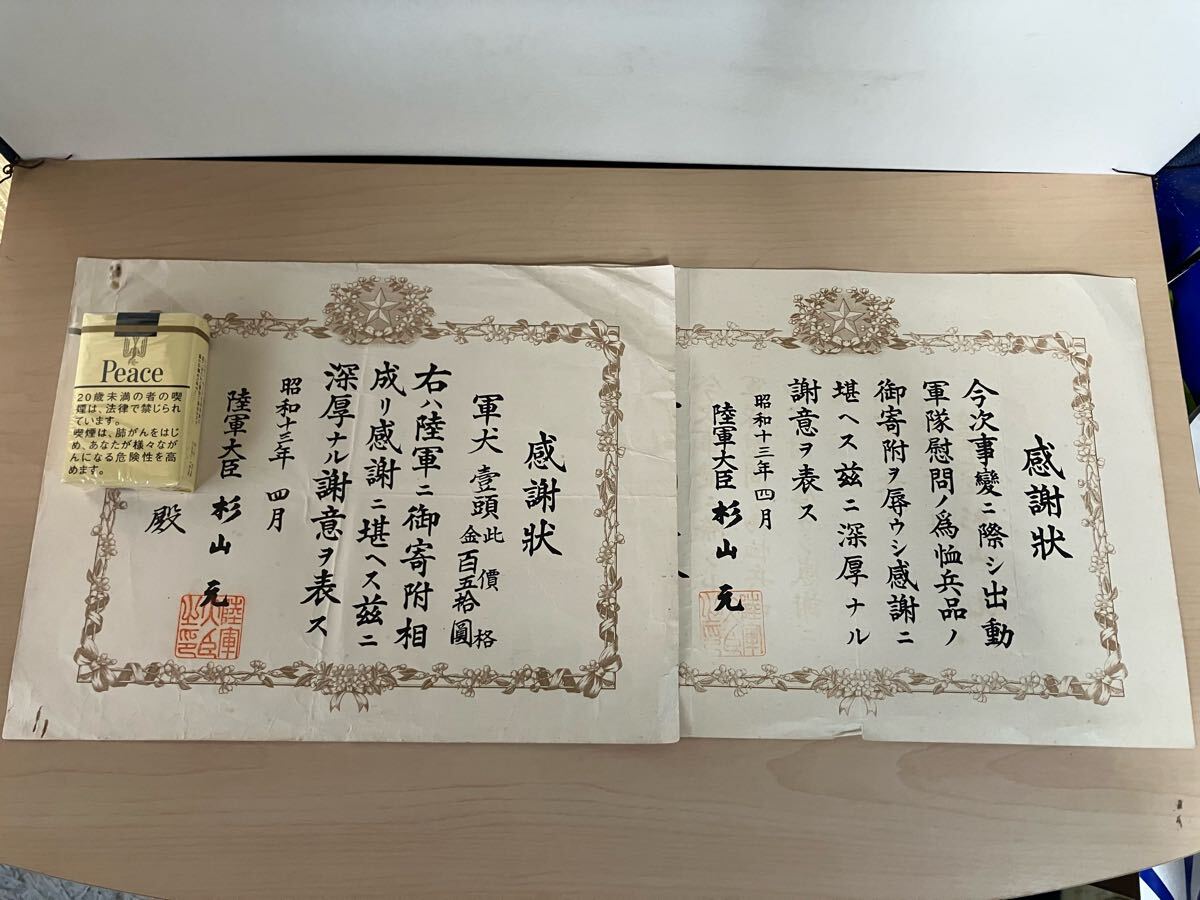 感謝狀
今次事變ニ際シ出動
軍隊慰問ノ爲恤兵品ノ
御寄附ヲ辱ウシ感謝ニ
堪ヘス茲ニ深厚ナル
謝意ヲ表ス
昭和十三年四月
陸軍大臣 杉山 元
陸軍大臣之印
感謝狀
軍犬 壹頭 此價格
金百五拾圓
右ハ陸軍ニ御寄附相
成リ感謝ニ堪ヘス茲ニ
深厚ナル謝意ヲ表ス
昭和十三年 四月
陸軍大臣 杉山 元
陸軍大臣之印
殿
Peace
20歳未満の者の喫
煙は、法律で禁じられ
ています。
喫煙は、肺がんをはじ
め、あなたが様々なが
んになる危険性を高
めます。